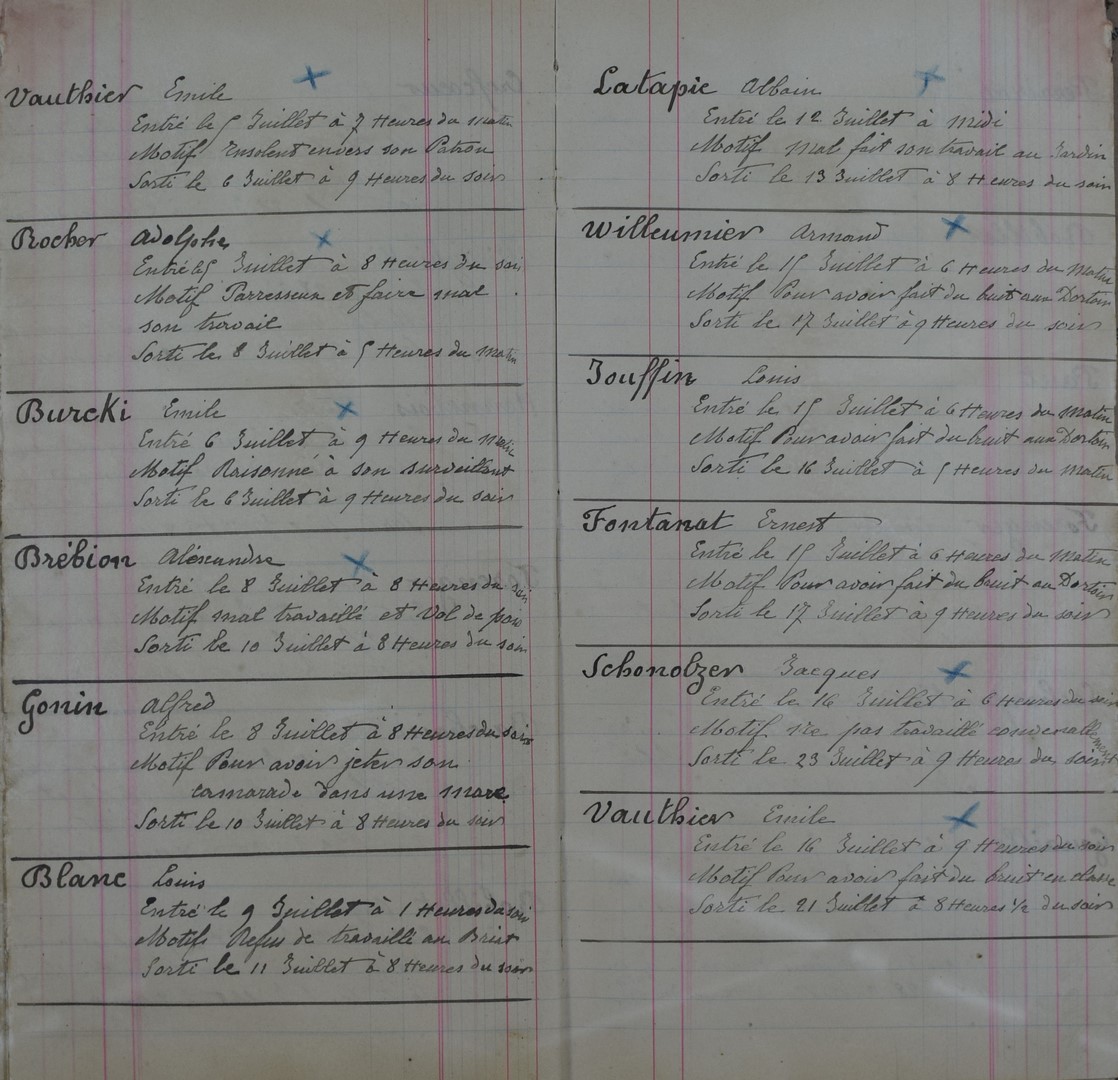 Vauthier Emile
Entré le 5 Juillet à 7 Heures du matin
Motif Insolent envers son Patron
Sorti le 6 Juillet à 9 Heures du soir
Rocher Adolphe
Entré le 5 Juillet à 8 Heures du soir
Motif Parresseux et faire mal
son travail
Sorti le 8 Juillet à 5 Heures du matin
Burcki Emile
Entré 6 Juillet à 9 Heures du
Motif Raisonné à son surveillant
Sorti le 6 Juillet à 9 Heures du soir
Brébion Aléxandre
Entré le 8 Juillet à 8 Heures du soir
Motif mal travaillé et Vol de
Sorti le 10 Juillet à 8 Heures du soir
Gonin Alfred
Entré le 8 Juillet à 8 Heures du soir
Motif Pour avoir jeter son
camarade dans une mare
Sorti le 10 Juillet à 8 Heures du soir
Blanc Louis
Entré le 9 Juillet à 1 Heures du soir
Motifs Refus de travaillé au
Sorti le 11 Juillet à 8 Heures du soir
Latapie Albain
Entré le 12 Juillet à midi
Motif mal fait son travail au Jardin
Sorti le 13 Juillet à 8 Heures du soir
Willeumier Armand
Entré le 15 Juillet à 6 Heures du Matin
Motif Pour avoir fait du buit aux Dortoir
Sorti le 17 Juillet à 9 Heures du soir
Jouffin Louis
Entré le 15 Juillet à 6 Heures du Matin
Motif Pour avoir fait du bruit aux Dortoir
Sorti le 16 Juillet à 5 Heures du Matin
Fontanat Ernest
Entré le 15 Juillet à 6 Heures du Matin
Motif Pour avoir fait du bruit au Dortoir
Sorti le 17 Juillet à 9 Heures du soir
Schonolzer Jacques
Entré le 16 Juillet à 6 Heures du soir
Motif pas travaillé convenablement
Sorti le 23 Juillet à 9 Heures du soir
Vauthier Emile
Entré le 16 Juillet à 9 Heures du soir
Motif Pour avoir fait du bruit en classe
Sorti le 21 Juillet à 8 Heures 1/2 du soir